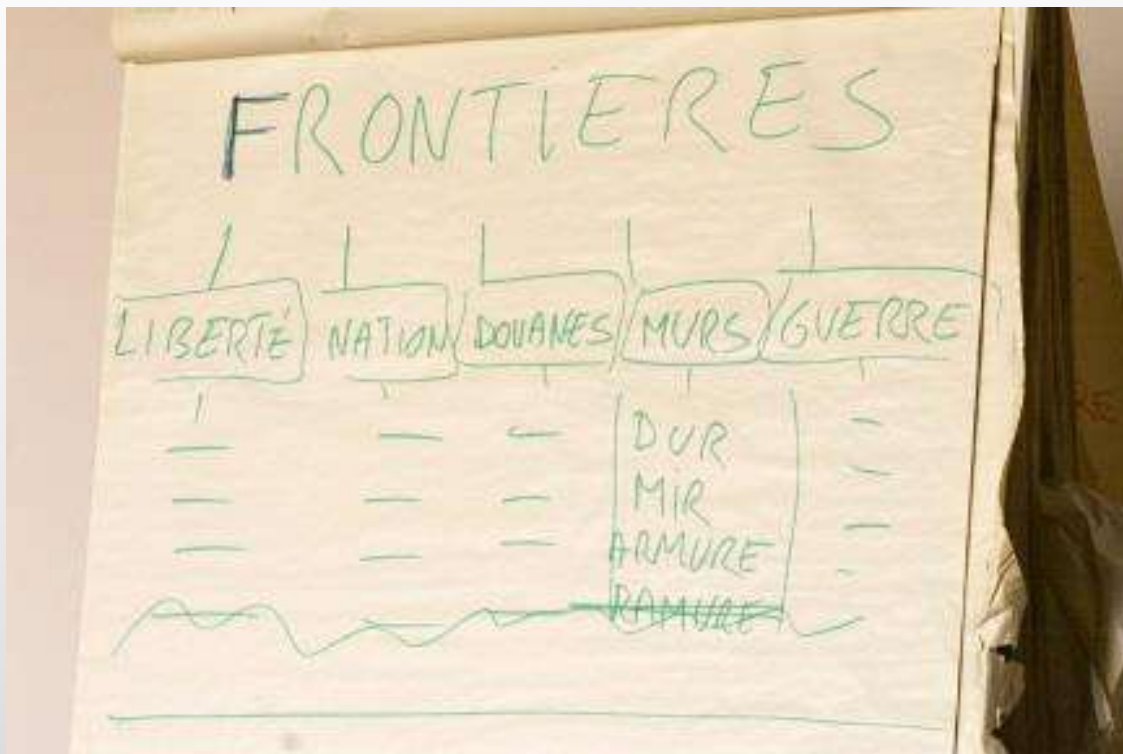 FRONTIERES
LIBERTÉ NATION DOUANES MURS GUERRE
DUR
MIR
ARMURE
RAMURE